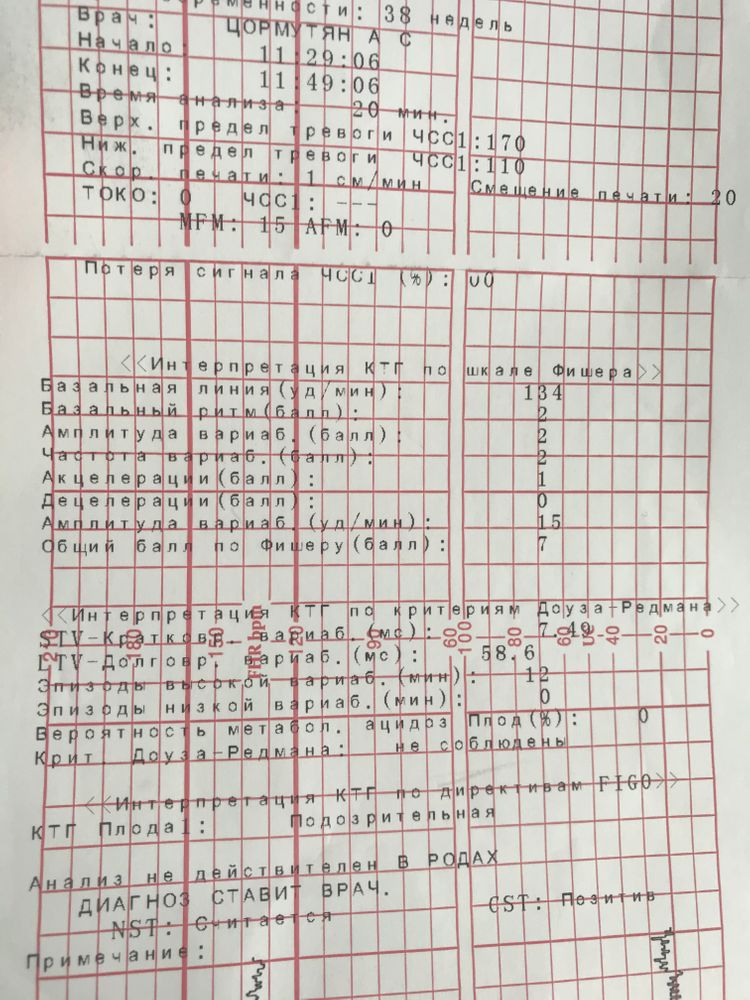 ременности: 38 недель
Врач: ЦОРМУТЯН А С
Начало: 11:29:06
Конец: 11:49:06
Время анализа: 20 мин.
Верх. предел тревоги ЧСС1:170
Ниж. предел тревоги ЧСС1:110
Скор. печати: 1 см/мин Смещение печати: 20
ТОКО: 0 ЧСС1: ---
MFM: 15 AFM: 0
Потеря сигнала ЧСС1 (%): 00
<<Интерпретация КТГ по шкале Фишера>>
Базальная линия(уд/мин): 134
Базальный ритм(балл): 2
Амплитуда вариаб.(балл): 2
Частота вариаб.(балл): 2
Акцелерации(балл): 1
Децелерации(балл): 0
Амплитуда вариаб.(уд/мин): 15
Общий балл по Фишеру(балл): 7
<<Интерпретация КТГ по критериям Доуза-Редмана>>
STV-Кратковр. вариаб.(мс): 7.49
210 180 150 FHR bpm 120 90 60 100 80 60 40 20 0
LTV-Долговр. вариаб.(мс): 58.6
Эпизоды высокой вариаб.(мин): 12
Эпизоды низкой вариаб.(мин): 0
Вероятность метабол. ацидоз Плод(%): 0
Крит. Доуза-Редмана: не соблюдены
<<Интерпретация КТГ по директивам FIGO>>
КТГ Плода1: Подозрительная
Анализ не действителен В РОДАХ
ДИАГНОЗ СТАВИТ ВРАЧ.
NST: Считается CST: Позитив
Примечание: